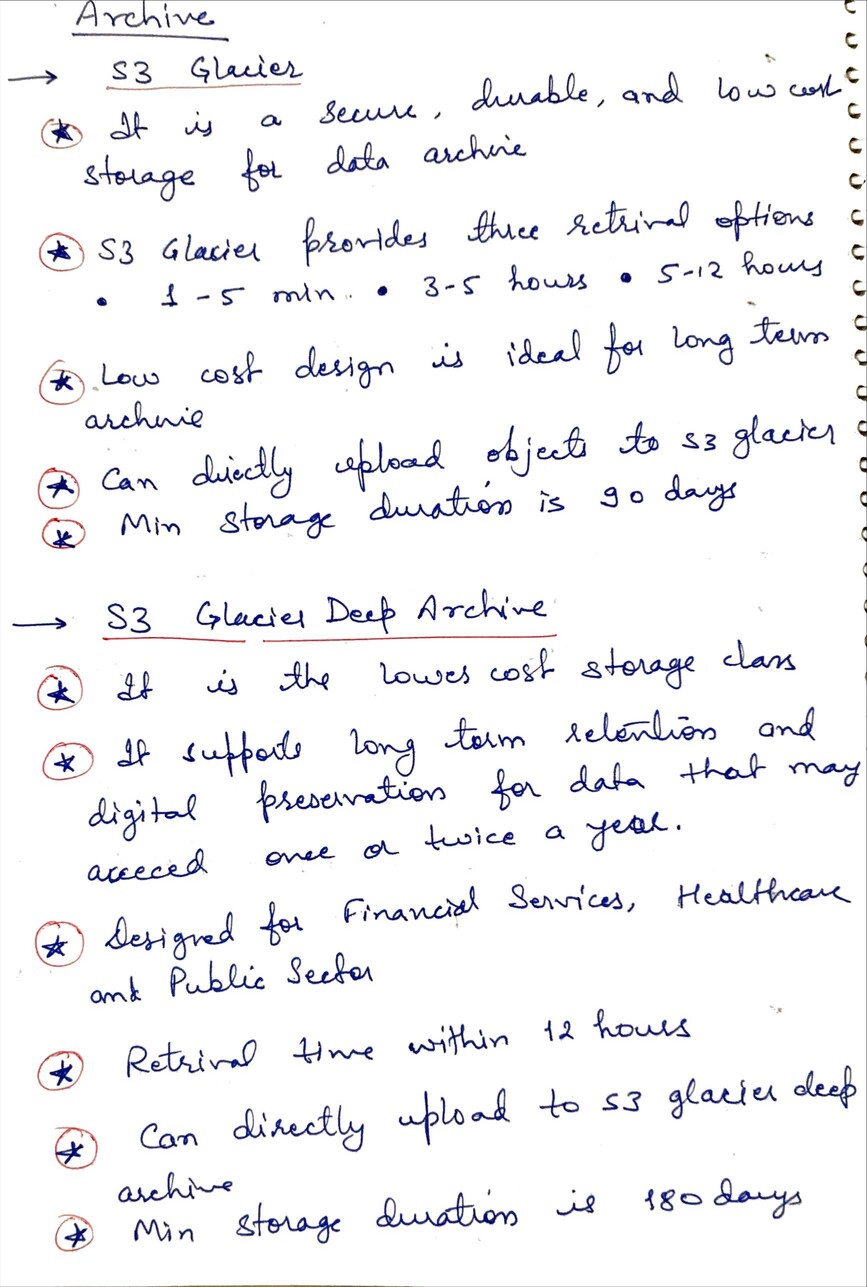 Archive
→ S3 Glacier
★ It is a secure, durable, and low cost
storage for data archive
★ S3 Glacier provides three retrival options
• 1-5 min. • 3-5 hours • 5-12 hours
★ Low cost design is ideal for long term
archive
★ Can directly upload objects to S3 glacier
★ Min storage duration is 90 days
→ S3 Glacier Deep Archive
★ It is the lowes cost storage class
★ It supports long term retention and
digital preservation for data that may
acceced once or twice a year.
★ Designed for Financial Services, Healthcare
and Public Sector
★ Retrival time within 12 hours
★ Can directly upload to S3 glacier deep
archive
★ Min storage duration is 180 days